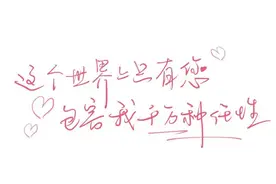 这个世界上只有您
包容我千万种任性